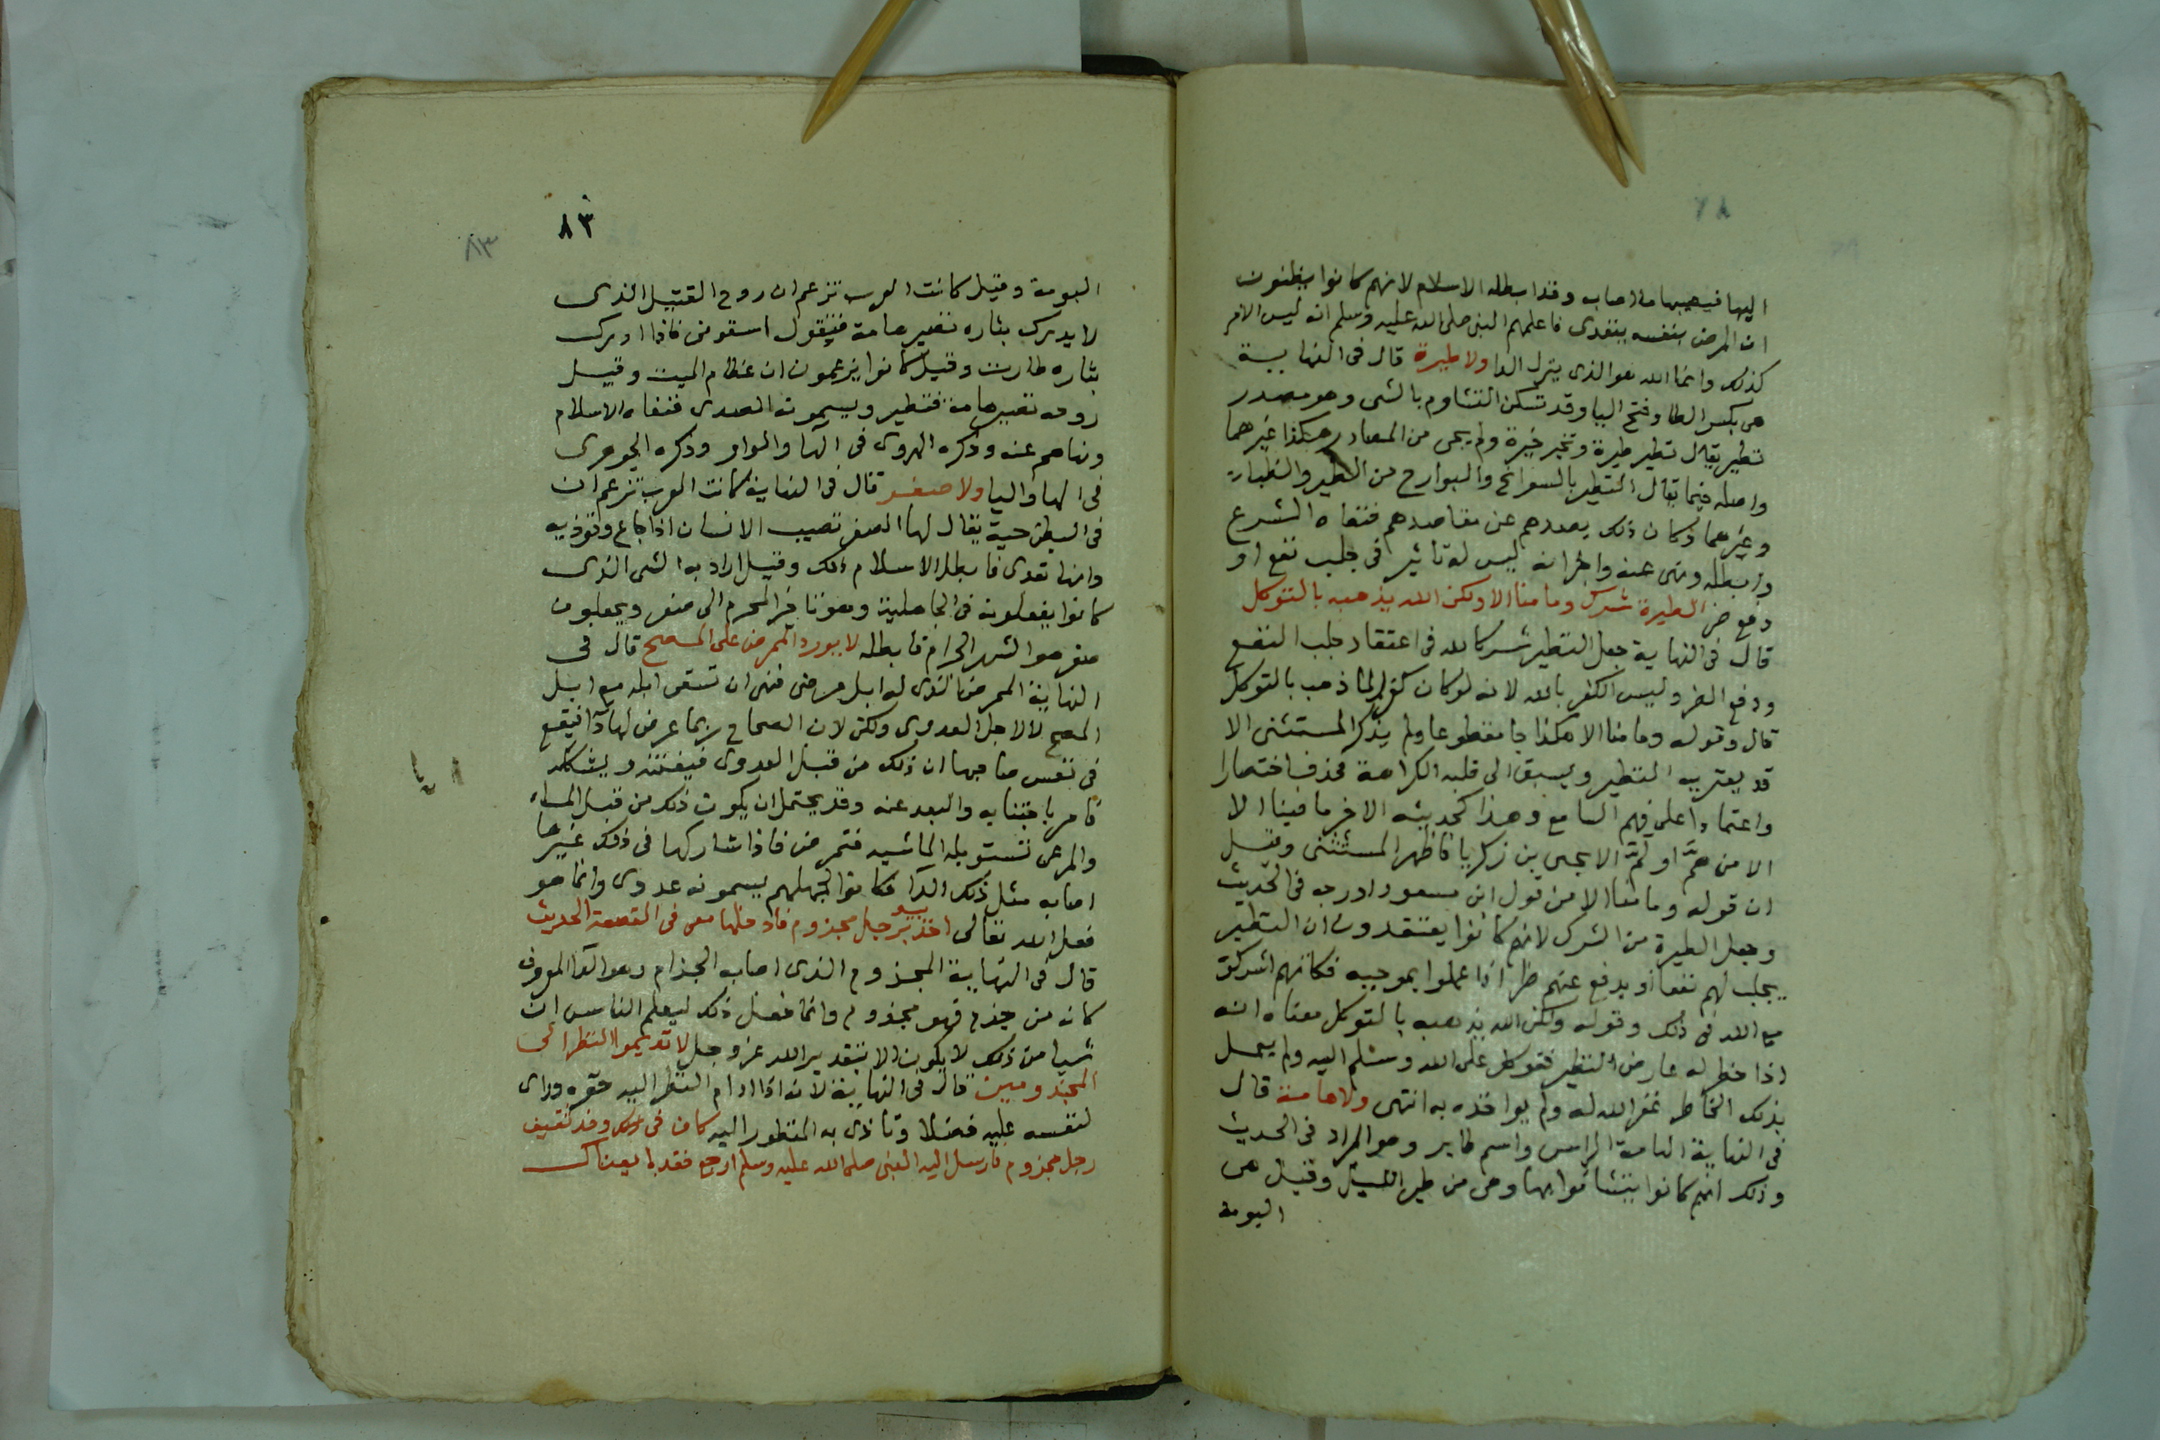 ٧٨
اليها فيصيبها ما اصابه وقد ابطله الاسلام لانهم كانوا يظنون
ان المرض بنفسه يتعدى فاعلمهم النبى صلى الله عليه وسلم انه ليس الامر
كذلك وانما الله هو الذى ينزل الدا ولا طيرة قال فى النهاية
هى بكسر الطا وفتح اليا وقد تسكن التشاوم بالشى وهو مصدر
تطير يقال تطير طيرة وتخير خيرة ولم يجى من المصادر هكذا غيرهما
واصله فيما يقال التطير بالسوانح والبوارح من الطير والظباء
وغيرهما وكان ذلك يصدهم عن مقاصدهم فنفاه الشرع
وابطله ونهى عنه واخبر انه ليس له تاثير فى جلب نفع او
دفع ضر الطيرة شرك وما منا الا ولكن الله يذهبه بالتوكل
قال فى النهاية جعل التطير شركا لله فى اعتقاد جلب النفع
ودفع الضر وليس الكفر بالله لانه لو كان كفرا لما ذهب بالتوكل
قال وقوله وما منا الا هكذا جا مقطوعا ولم يذكر المستثنى الا
قد يعتريه التطير ويسبق الى قلبه الكراهة فحذف اختصارا
واعتمادا على فهم السامع وهذا كحديثه الاخر ما فينا الا
الا من هم او لم الا يحيى بن زكريا فاظهر المستثنى وقيل
ان قوله وما منا الا من قول ابن مسعود ادرجه فى الحديث
وجعل الطيرة من الشرك لانهم كانوا يعتقدون ان التطير
يجلب لهم نفعا او يدفع عنهم ضرا اذا عملوا بموجبه فكانهم اشركوه
مع الله فى ذلك وقوله ولكن الله يذهبه بالتوكل معناه انه
اذا خطر له عارض التطير فتوكل على الله وسلم اليه ولم يعمل
بذلك الخاطر غفر الله له ولم يواخذه به انتهى ولا هامة قال
فى النهاية الهامة الراس واسم طاير وهو المراد فى الحديث
وذلك انهم كانوا يتشائموا بها وهى من طير الليل وقيل هى
البومة
٨٣
٨٣
البومة وقيل كانت العرب تزعم ان روح القتيل الذى
لا يدرك بثاره تصير هامة فتقول اسقونى فاذا ادرك
بثاره طارت وقيل كانوا يزعمون ان عظام الميت وقيل
روحه تصير هامة فتطير ويسمونه الصدى فنفاه الاسلام
ونهاهم عنه وذكره الهروى فى الها والواو وذكره الجوهرى
فى الها واليا ولا صفر قال فى النهاية كانت العرب تزعم ان
فى البطن حية يقال لها الصفر تصيب الانسان اذا جاع وتوذيه
وانها تعدى فابطل الاسلام ذلك وقيل اراد به الشى الذى
كانوا يفعلونه فى الجاهلية وهو تاخير المحرم الى صفر ويجعلون
صفر هو الشهر الحرام فابطله لا يورد الممرض على المصح قال فى
النهاية الممرض الذى له ابل مرضى فنهى ان تسقى ابله مع ابل
المصح لا لاجل العدوى ولكن لان الصحاح ربما عرض لها دا فيقع
فى نفس صاحبها ان ذلك من قبل العدوى فيفتنه ويشككه
فامر باجتنابه والبعد عنه وقد يحتمل ان يكون ذلك من قبل الماء
والمرعى تستوبله الماشيه فتمرض فاذا شاركها فى ذلك غيرها
اصابه مثل ذلك الدآ فكانوا لجهلهم يسمونه عدوى وانما هو
فعل الله تعالى اخذ بيد رجل مجذوم فادخلها معه فى القصعة الحديث
قال فى النهاية المجذوم الذى اصابه الجذام وهو الدآ المعروف
كانه من جذم فهو مجذوم وانما فعل ذلك ليعلم الناس ان
شيا من ذلك لا يكون الا بتقدير الله عز وجل لا تديموا النظر الى
المجذومين قال فى النهاية لانه اذا ادام النظر اليه حقره وراى
لنفسه عليه فضلا وتاذى به المنظور اليه كان فى وفد ثقيف
رجل مجذوم فارسل اليه النبى صلى الله عليه وسلم ارجع فقد بايعناك